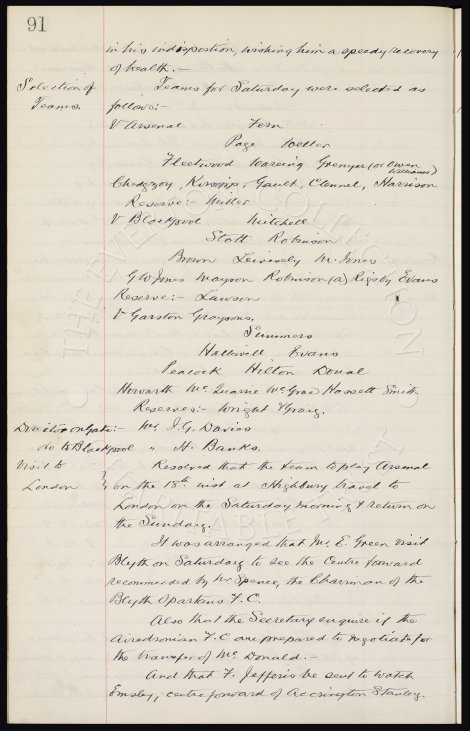 91
in his indisposition, wishing him a speedy recovery
of health. —
Selection of Teams for Saturday were selected as
Teams. follows:-
V Arsenal Fern
Page Weller
Fleetwood Wareing Grenyer (or Owen Williams)
Chedgzoy, Kirsopp, Gault, Clennel, Harrison
Reserve:- Miller
V Blackpool Mitchell
Stott Robinson
Brown Leivesely McJones
G W Jones Mayson Robinson (a) Rigsby Evans
Reserve:- Lawson
V Garston Graysons.
Summers
Halliwell Evans
Peacock Hilton Doval
Howarth McQuarrie McGrae Hassett Smith
Reserves:- Wright & Graig.
Director on Gate:- Mr J. G. Davies
do to Blackpool " H. Banks.
Visit to Resolved that the team to play Arsenal
London on the 18th inst at Highbury travel to
London on the Saturday morning & return on
the Sunday.
It was arranged that Mr E. Green visit
Blyth on Saturday to see the Centre forward
recommended by Mr Spence, the Chairman of the
Blyth Spartans F.C.
Also that the Secretary enquire if the
Airedronian F.C are prepared to negotiate for
the transfer of McDonald. —
And that F. Jefferis be sent to watch
Emsley, centre forward of Accrington Stanley.
THE EVERTON COLLECTION
CHARITABLE TRUST